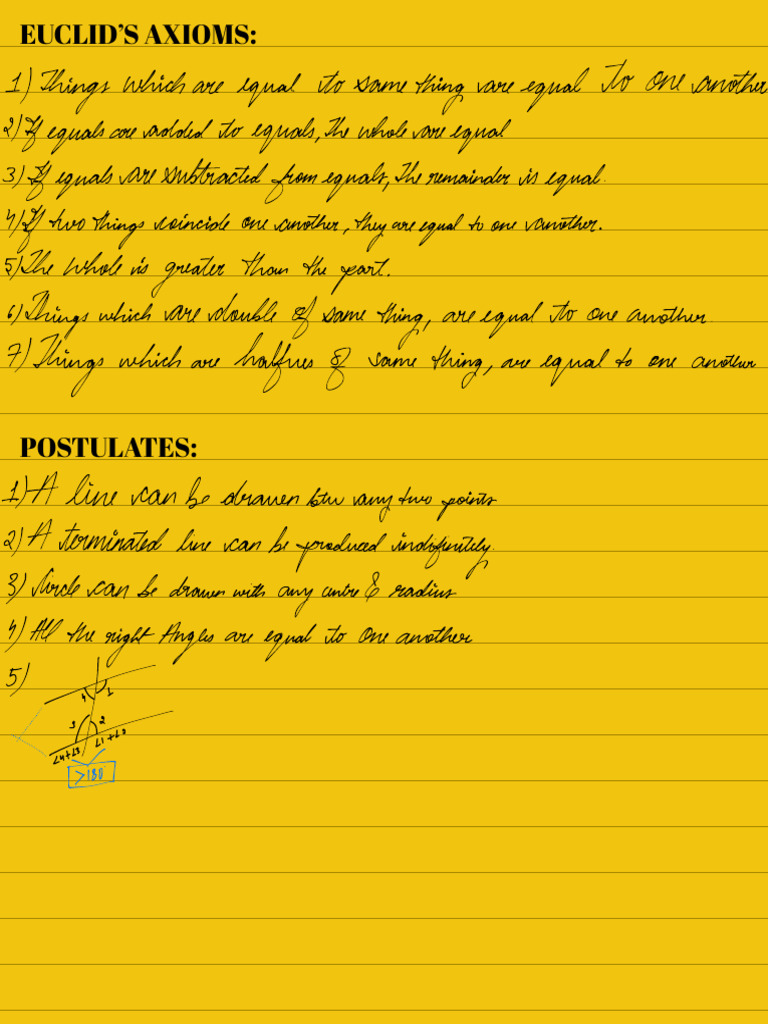 EUCLID'S AXIOMS:
1) Things which are equal to same thing are equal to one another
2) If equals are added to equals, The whole are equal
3) If equals are subtracted from equals, The remainder is equal.
4) If two things coincide one another, they are equal to one another.
5) The whole is greater than the part.
6) Things which are double of same thing, are equal to one another
7) Things which are halfves of same thing, are equal to one another
POSTULATES:
1) A line can be drawn btw any two points
2) A terminated line can be produced indifinitely.
3) Circle can be drawn with any centre & radius
4) All the right Angles are equal to one another
5)
4 1
3 2
∠4+∠3 ∠1+∠2
>180